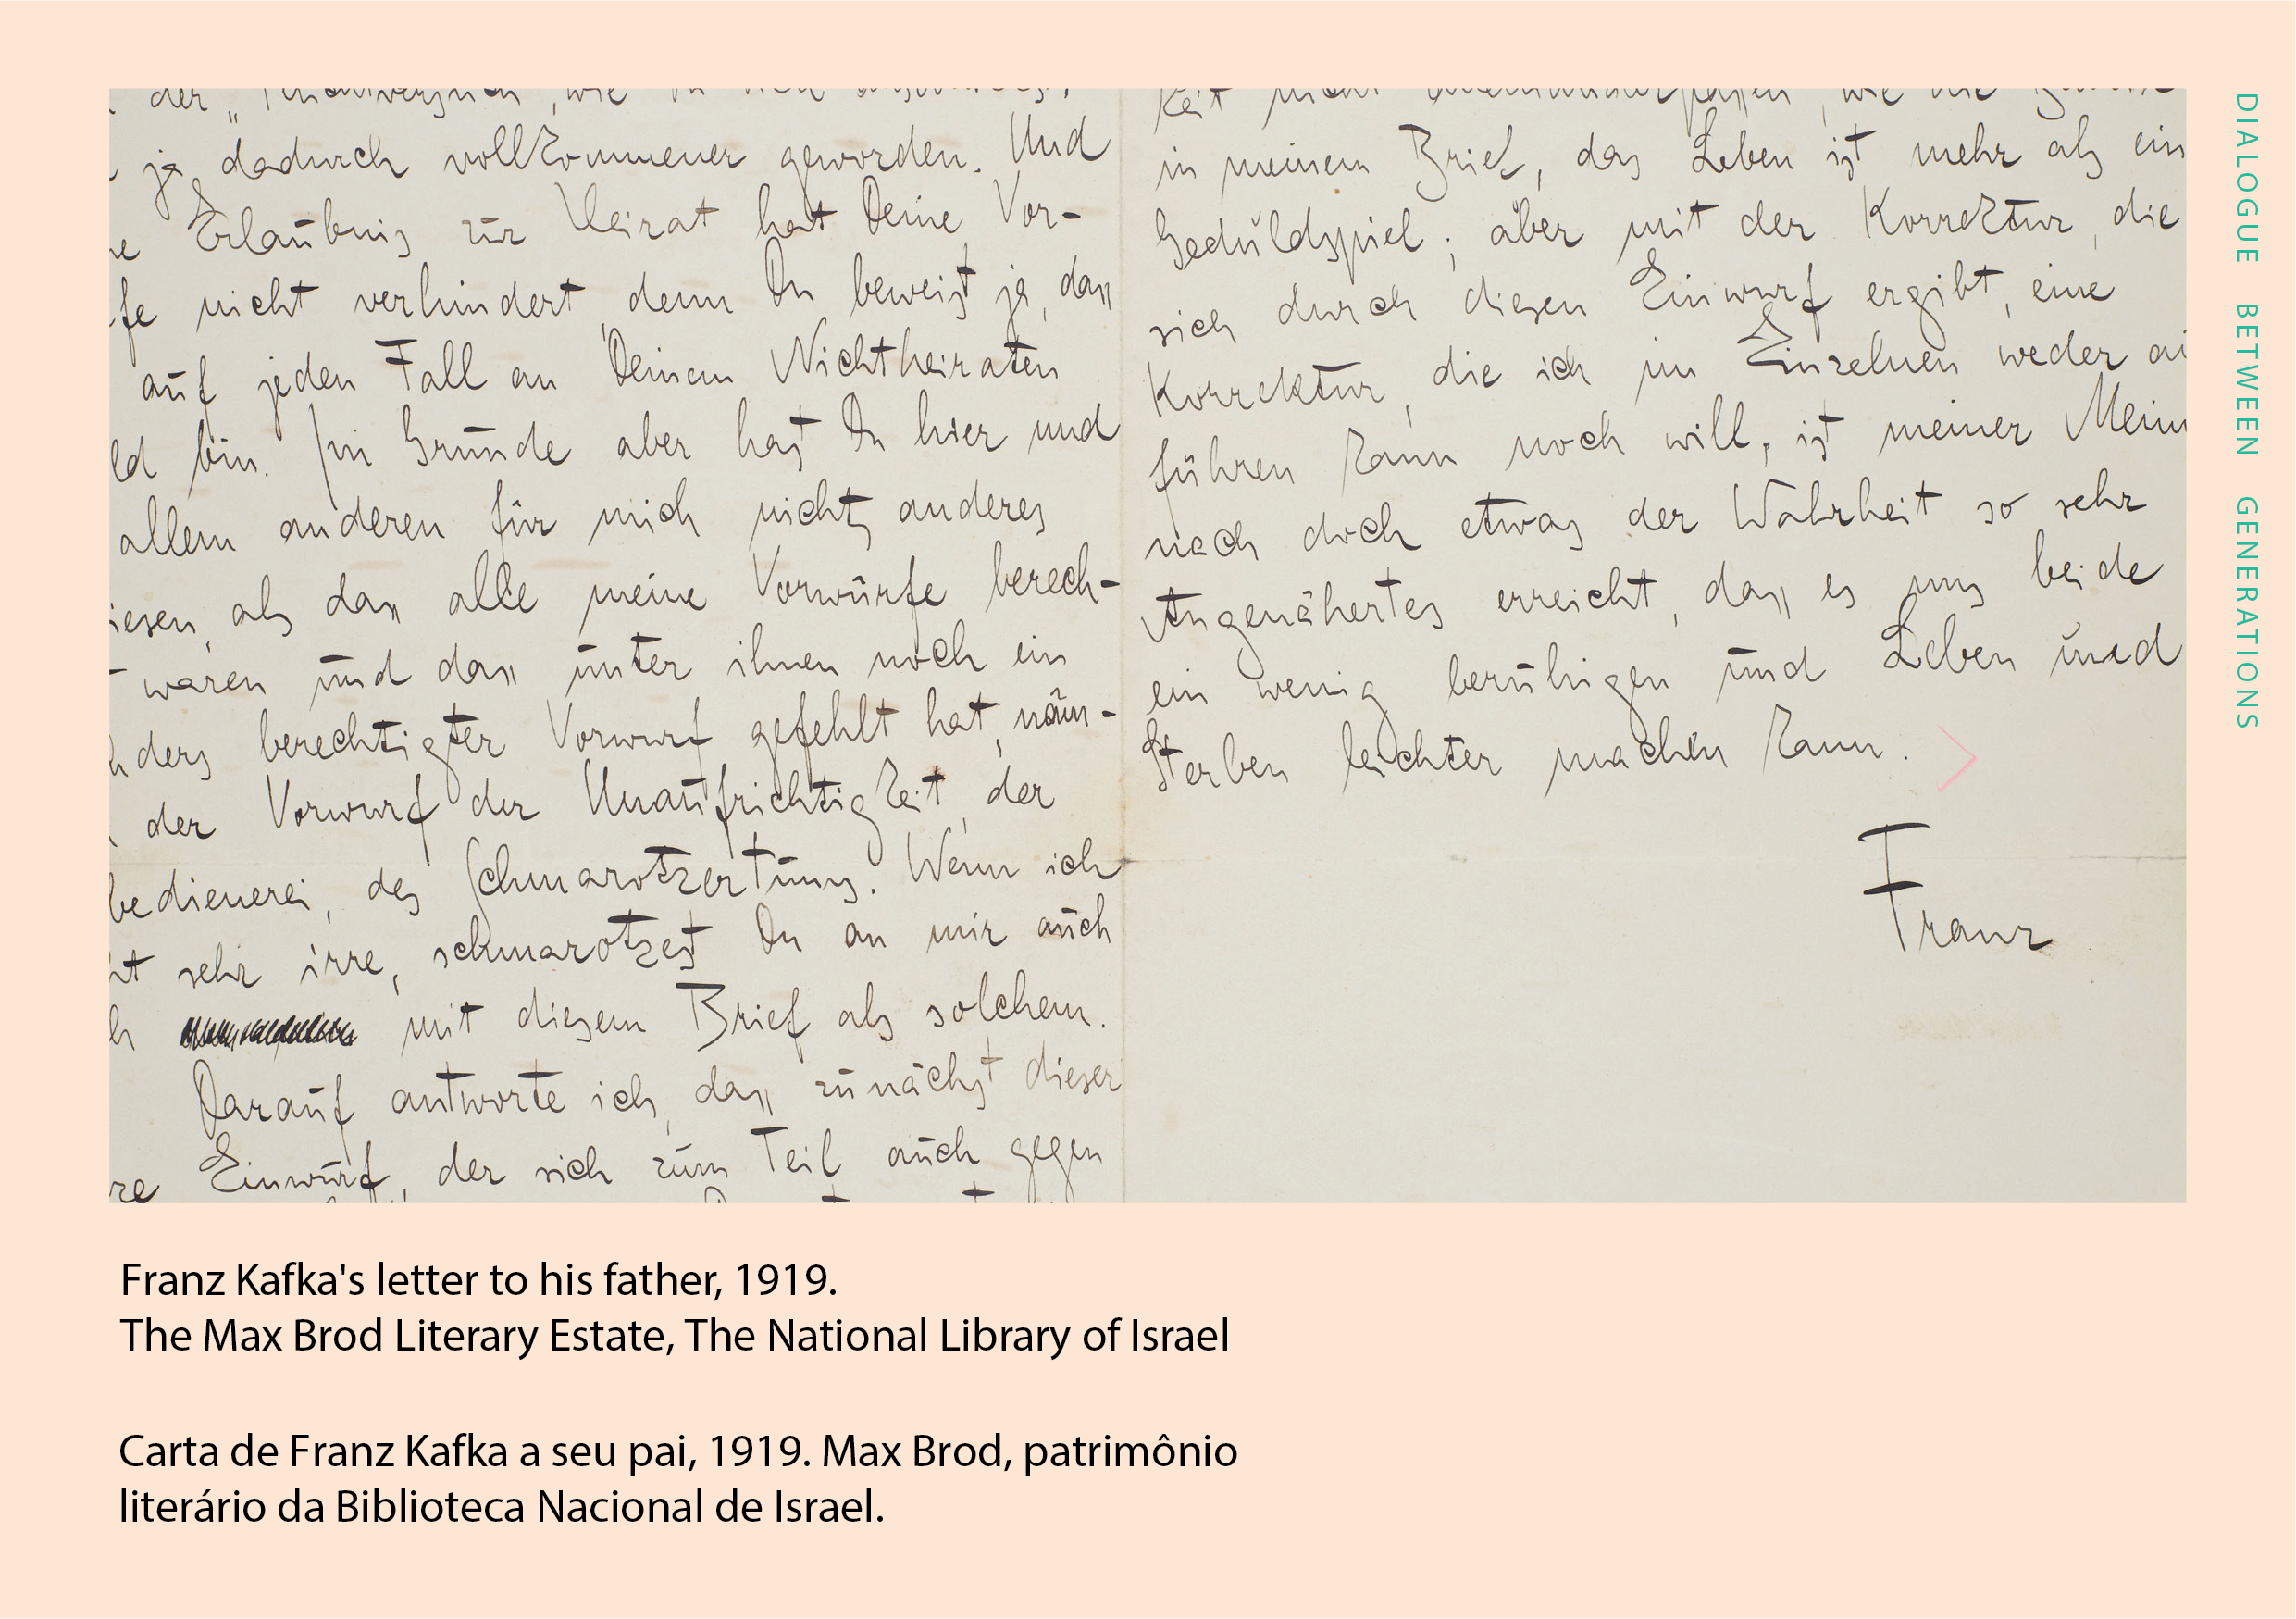 ja dadurch vollkommener geworden. Und
Erlaubnis zur Heirat hat Deine Vor-
fe nicht verhindert, denn Du beweist ja, dass
auf jeden Fall an Deinem Nichtheiraten
ld bin. Im Grunde aber hast Du hier und
allem anderen für mich nichts anderes
iesen, als dass alle meine Vorwürfe berech-
t waren und dass unter ihnen noch ein
nders berechtigter Vorwurf gefehlt hat, näm-
der Vorwurf der Unaufrichtigkeit, der
bedienerei, des Schmarotzertums. Wenn ich
ht sehr irre, schmarotzest Du an mir auch
h mit diesem Brief als solchem.
Darauf antworte ich, dass zunächst dieser
re Einwurf, der sich zum Teil auch gegen
in meinem Brief, das Leben ist mehr als ein
Geduldspiel; aber mit der Korrektur, die
sich durch diesen Einwurf ergibt, eine
Korrektur, die ich im Einzelnen weder au
führen kann noch will, ist meiner Mein
nach doch etwas der Wahrheit so sehr
Angenähertes erreicht, dass es uns beide
ein wenig beruhigen und Leben und
Sterben leichter machen kann.
Franz
DIALOGUE BETWEEN GENERATIONS
Franz Kafka's letter to his father, 1919.
The Max Brod Literary Estate, The National Library of Israel
Carta de Franz Kafka a seu pai, 1919. Max Brod, patrimônio
literário da Biblioteca Nacional de Israel.